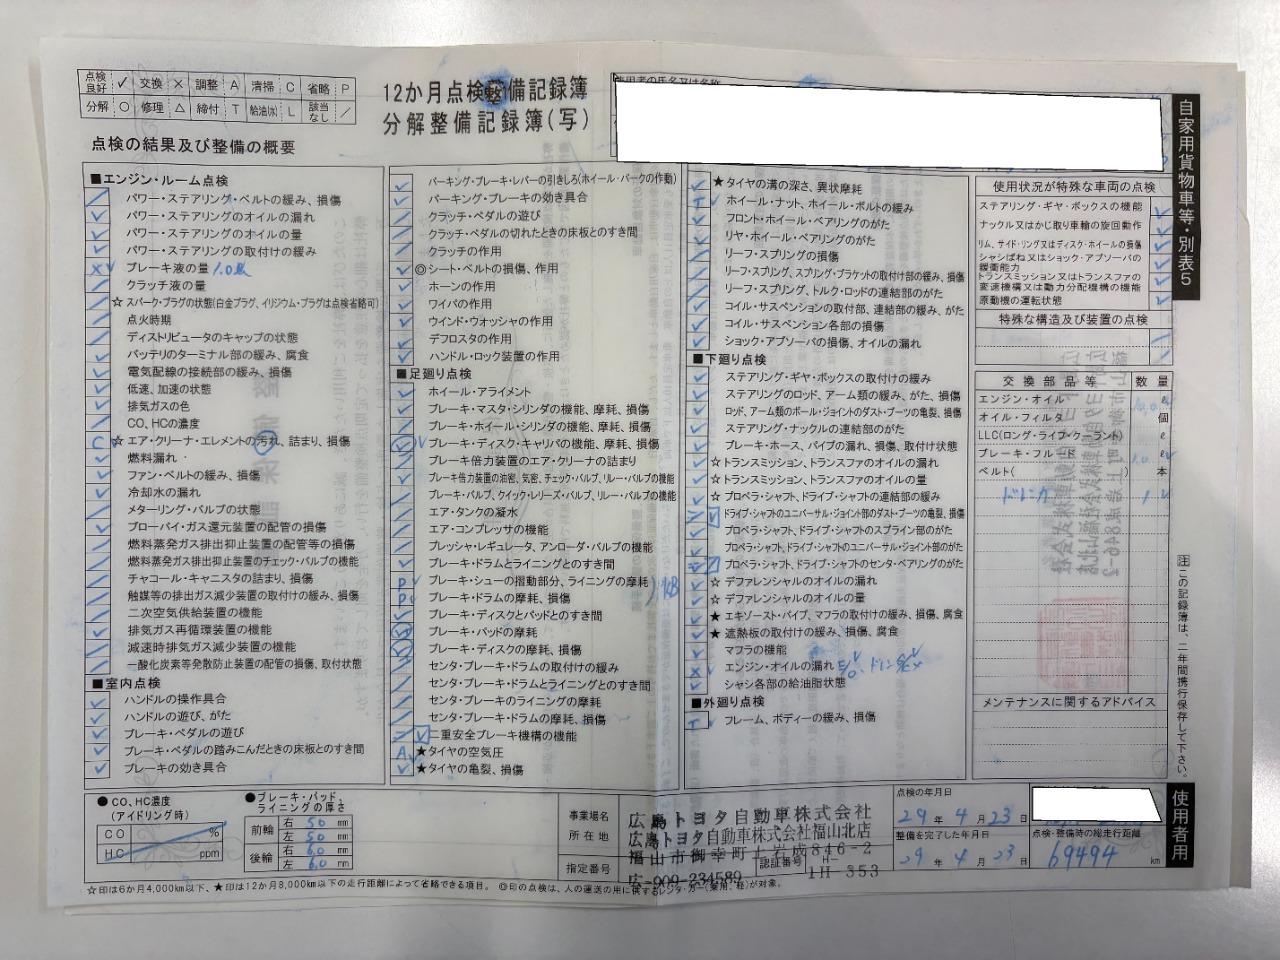 点検良好 ✓ 交換 × 調整 A 清掃 C 省略 P
分解 ○ 修理 △ 締付 T 給油(水) L 該当なし ／
12か月点検整備記録簿
分解整備記録簿(写)
点検の結果及び整備の概要
■エンジン・ルーム点検
パワー・ステアリング・ベルトの緩み、損傷
パワー・ステアリングのオイルの漏れ
パワー・ステアリングのオイルの量
パワー・ステアリングの取付けの緩み
ブレーキ液の量
クラッチ液の量
☆スパーク・プラグの状態(白金プラグ、イリジウム・プラグは点検省略可)
点火時期
ディストリビュータのキャップの状態
バッテリのターミナル部の緩み、腐食
電気配線の接続部の緩み、損傷
低速、加速の状態
排気ガスの色
CO、HCの濃度
☆エア・クリーナ・エレメントの汚れ、詰まり、損傷
燃料漏れ
ファン・ベルトの緩み、損傷
冷却水の漏れ
メターリング・バルブの状態
ブローバイ・ガス還元装置の配管の損傷
燃料蒸発ガス排出抑止装置の配管等の損傷
燃料蒸発ガス排出抑止装置のチェック・バルブの機能
チャコール・キャニスタの詰まり、損傷
触媒等の排出ガス減少装置の取付けの緩み、損傷
二次空気供給装置の機能
排気ガス再循環装置の機能
減速時排気ガス減少装置の機能
一酸化炭素等発散防止装置の配管の損傷、取付状態
■室内点検
ハンドルの操作具合
ハンドルの遊び、がた
ブレーキ・ペダルの遊び
ブレーキ・ペダルの踏みこんだときの床板とのすき間
ブレーキの効き具合
パーキング・ブレーキ・レバーの引きしろ(ホイール・パークの作動)
パーキング・ブレーキの効き具合
クラッチ・ペダルの遊び
クラッチ・ペダルの切れたときの床板とのすき間
クラッチの作用
◎シート・ベルトの損傷、作用
ホーンの作用
ワイパの作用
ウインド・ウォッシャの作用
デフロスタの作用
ハンドル・ロック装置の作用
■足廻り点検
ホイール・アライメント
ブレーキ・マスタ・シリンダの機能、摩耗、損傷
ブレーキ・ホイール・シリンダの機能、摩耗、損傷
ブレーキ・ディスク・キャリパの機能、摩耗、損傷
ブレーキ倍力装置のエア・クリーナの詰まり
ブレーキ倍力装置の油密、気密、チェック・バルブ、リレー・バルブの機能
ブレーキ・バルブ、クイック・レリーズ・バルブ、リレー・バルブの機能
エア・タンクの凝水
エア・コンプレッサの機能
プレッシャ・レギュレータ、アンローダ・バルブの機能
ブレーキ・ドラムとライニングとのすき間
ブレーキ・シューの摺動部分、ライニングの摩耗
ブレーキ・ドラムの摩耗、損傷
ブレーキ・ディスクとパッドとのすき間
ブレーキ・パッドの摩耗
ブレーキ・ディスクの摩耗、損傷
センタ・ブレーキ・ドラムの取付けの緩み
センタ・ブレーキ・ドラムとライニングとのすき間
センタ・ブレーキのライニングの摩耗
センタ・ブレーキ・ドラムの摩耗、損傷
二重安全ブレーキ機構の機能
★タイヤの空気圧
★タイヤの亀裂、損傷
★タイヤの溝の深さ、異状摩耗
ホイール・ナット、ホイール・ボルトの緩み
フロント・ホイール・ベアリングのがた
リヤ・ホイール・ベアリングのがた
リーフ・スプリングの損傷
リーフ・スプリング、スプリング・ブラケットの取付け部の緩み、損傷
リーフ・スプリング、トルク・ロッドの連結部のがた
コイル・サスペンションの取付部、連結部の緩み、がた
コイル・サスペンション各部の損傷
ショック・アブソーバの損傷、オイルの漏れ
■下廻り点検
ステアリング・ギヤ・ボックスの取付けの緩み
ステアリングのロッド、アーム類の緩み、がた、損傷
ロッド、アーム類のボール・ジョイントのダスト・ブーツの亀裂、損傷
ステアリング・ナックルの連結部のがた
ブレーキ・ホース、パイプの漏れ、損傷、取付け状態
☆トランスミッション、トランスファのオイルの漏れ
☆トランスミッション、トランスファのオイルの量
☆プロペラ・シャフト、ドライブ・シャフトの連結部の緩み
ドライブ・シャフトのユニバーサル・ジョイント部のダスト・ブーツの亀裂、損傷
プロペラ・シャフト、ドライブ・シャフトのスプライン部のがた
プロペラ・シャフト、ドライブ・シャフトのユニバーサル・ジョイント部のがた
プロペラ・シャフト、ドライブ・シャフトのセンタ・ベアリングのがた
☆デファレンシャルのオイルの漏れ
☆デファレンシャルのオイルの量
★エキゾースト・パイプ、マフラの取付けの緩み、損傷、腐食
★遮熱板の取付けの緩み、損傷、腐食
マフラの機能
エンジン・オイルの漏れ
シャシ各部の給油脂状態
■外廻り点検
フレーム、ボディーの緩み、損傷
使用状況が特殊な車両の点検
ステアリング・ギヤ・ボックスの機能
ナックル又はかじ取り車輪の旋回動作
リム、サイド・リング又はディスク・ホイールの損傷
シャシばね又はショック・アブソーバの緩衝能力
トランスミッション又はトランスファの変速機構又は動力分配機構の機能
原動機の運転状態
特殊な構造及び装置の点検
交換部品等 数量
エンジン・オイル ℓ
オイル・フィルタ 個
LLC(ロング・ライフ・クーラント) ℓ
ブレーキ・フルード 1.0 ℓ
ベルト( ) 本
1
メンテナンスに関するアドバイス
自家用貨物車等・別表5
注 この記録簿は、二年間携行保存して下さい。
使用者用
●CO、HC濃度
(アイドリング時)
CO %
HC ppm
●ブレーキ・パッド、ライニングの厚さ
前輪 右 5.0 mm
左 5.0 mm
後輪 右 6.0 mm
左 6.0 mm
事業場名 広島トヨタ自動車株式会社
所在地 広島トヨタ自動車株式会社福山北店
福山市御幸町上岩成846-2
指定番号 広-900-234589
認証番号 H- 1H-353
点検の年月日
29年 4月 23日
整備を完了した年月日
29年 4月 23日
点検・整備時の総走行距離
69494 km
☆印は6か月4,000km以下、★印は12か月8,000km以下の走行距離によって省略できる項目。 ◎印の点検は、人の運送の用に供するレンタ・カー(乗用、軽)が対象。